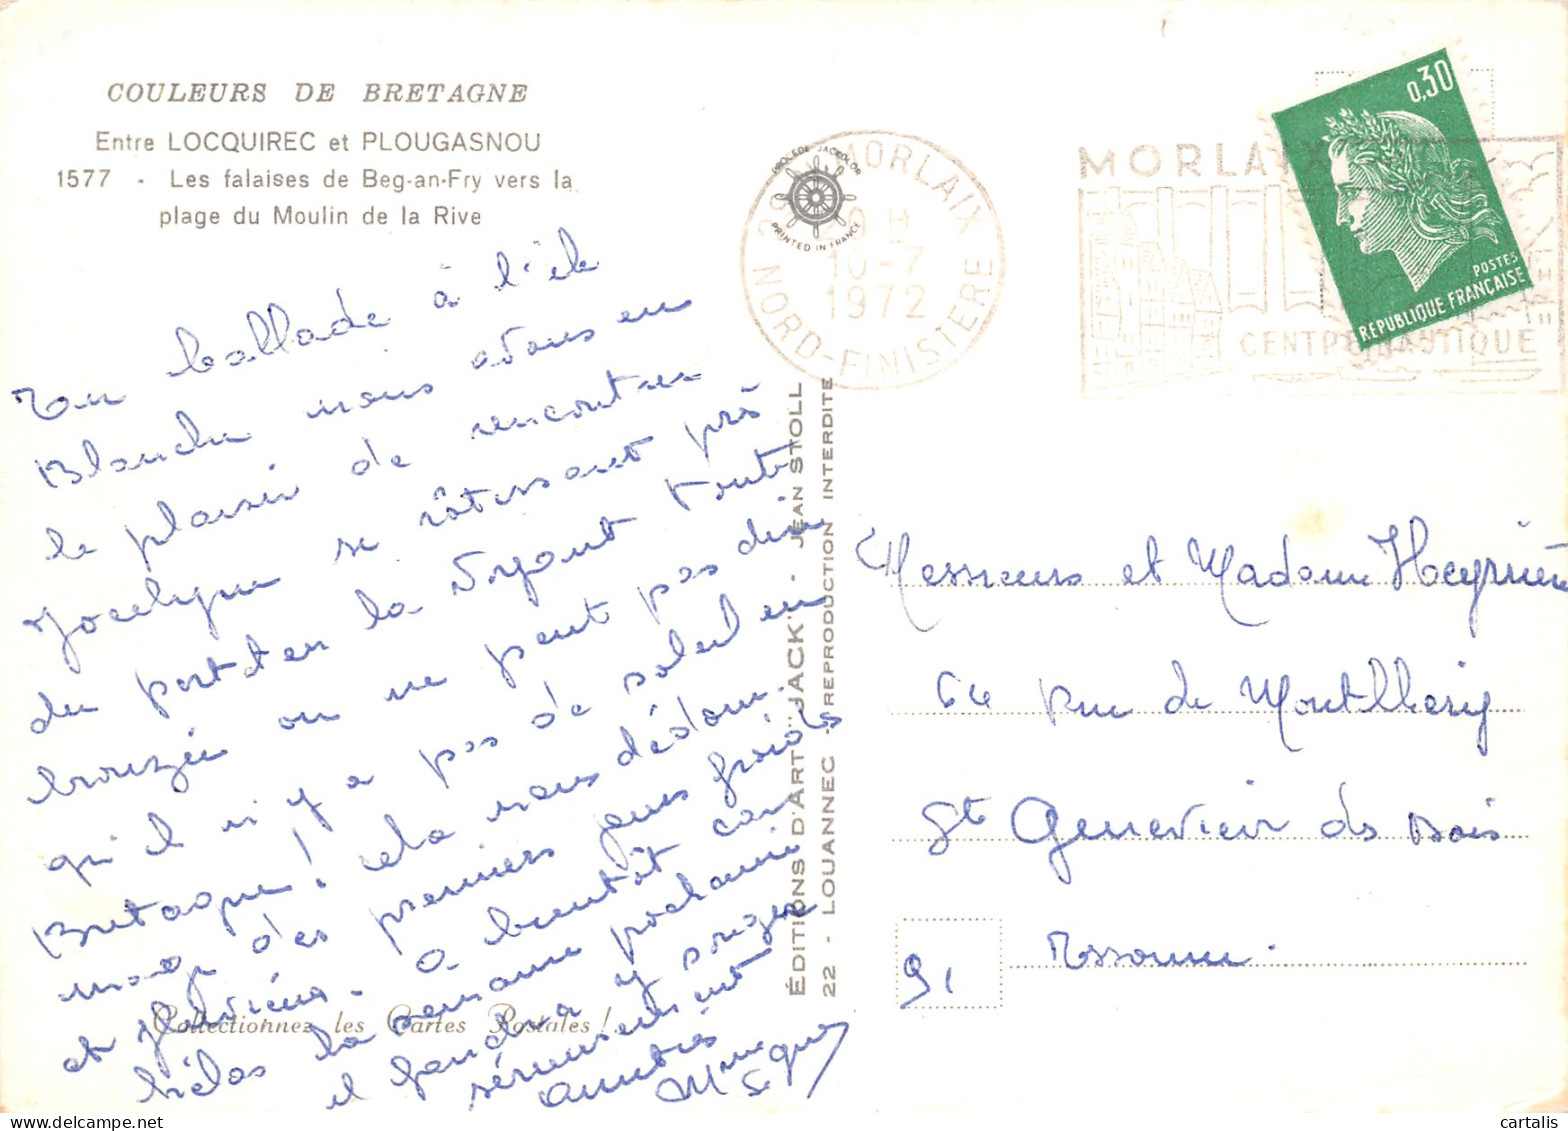 COULEURS DE BRETAGNE
Entre LOCQUIREC et PLOUGASNOU
1577 - Les falaises de Beg-an-Fry vers la
plage du Moulin de la Rive
en ballade à l'ile
Blanche nous avons eu
le plaisir de rencontrer
Jocelyne se rôtissant près
du port der la voyant toute
bronzée on ne peut pas dire
qu'il n'y a pas de soleil en
Bretagne ! cela nous dédom.
mage des premiers jours froids
et pluvieux. a bientôt car
hélas la semaine prochaine
il faudra y songer
sérieusement
amitiés
Collectionnez les Cartes Postales !
PROCÉDÉ JACKCOLOR
PRINTED IN FRANCE
MORLAIX
10-7
1972
NORD-FINISTERE
MORLAIX
CENTRE NAUTIQUE
0,30
POSTES
REPUBLIQUE FRANÇAISE
ÉDITIONS D'ART "JACK" - JEAN STOLL
22 - LOUANNEC - REPRODUCTION INTERDITE
Messieurs et Madame
64 Rue de Montlhery
Ste Genevieve des Bois
91 Essonne.